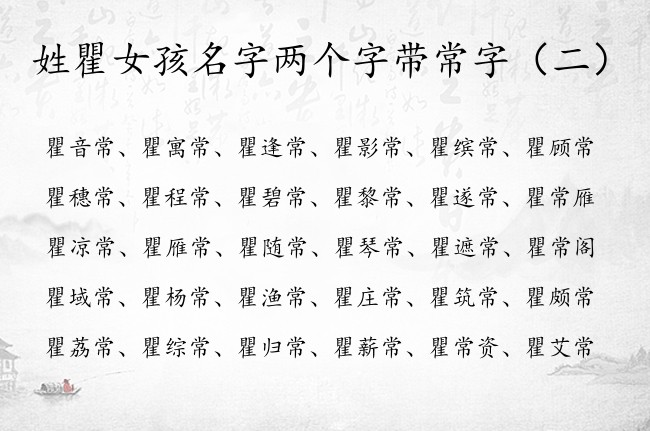 姓瞿女孩名字两个字带常字（二）
瞿音常、瞿寓常、瞿逢常、瞿影常、瞿缤常、瞿顾常
瞿穗常、瞿程常、瞿碧常、瞿黎常、瞿遂常、瞿常雁
瞿凉常、瞿雁常、瞿随常、瞿琴常、瞿遮常、瞿常阁
瞿域常、瞿杨常、瞿渔常、瞿庄常、瞿筑常、瞿颇常
瞿荔常、瞿综常、瞿归常、瞿薪常、瞿常资、瞿艾常